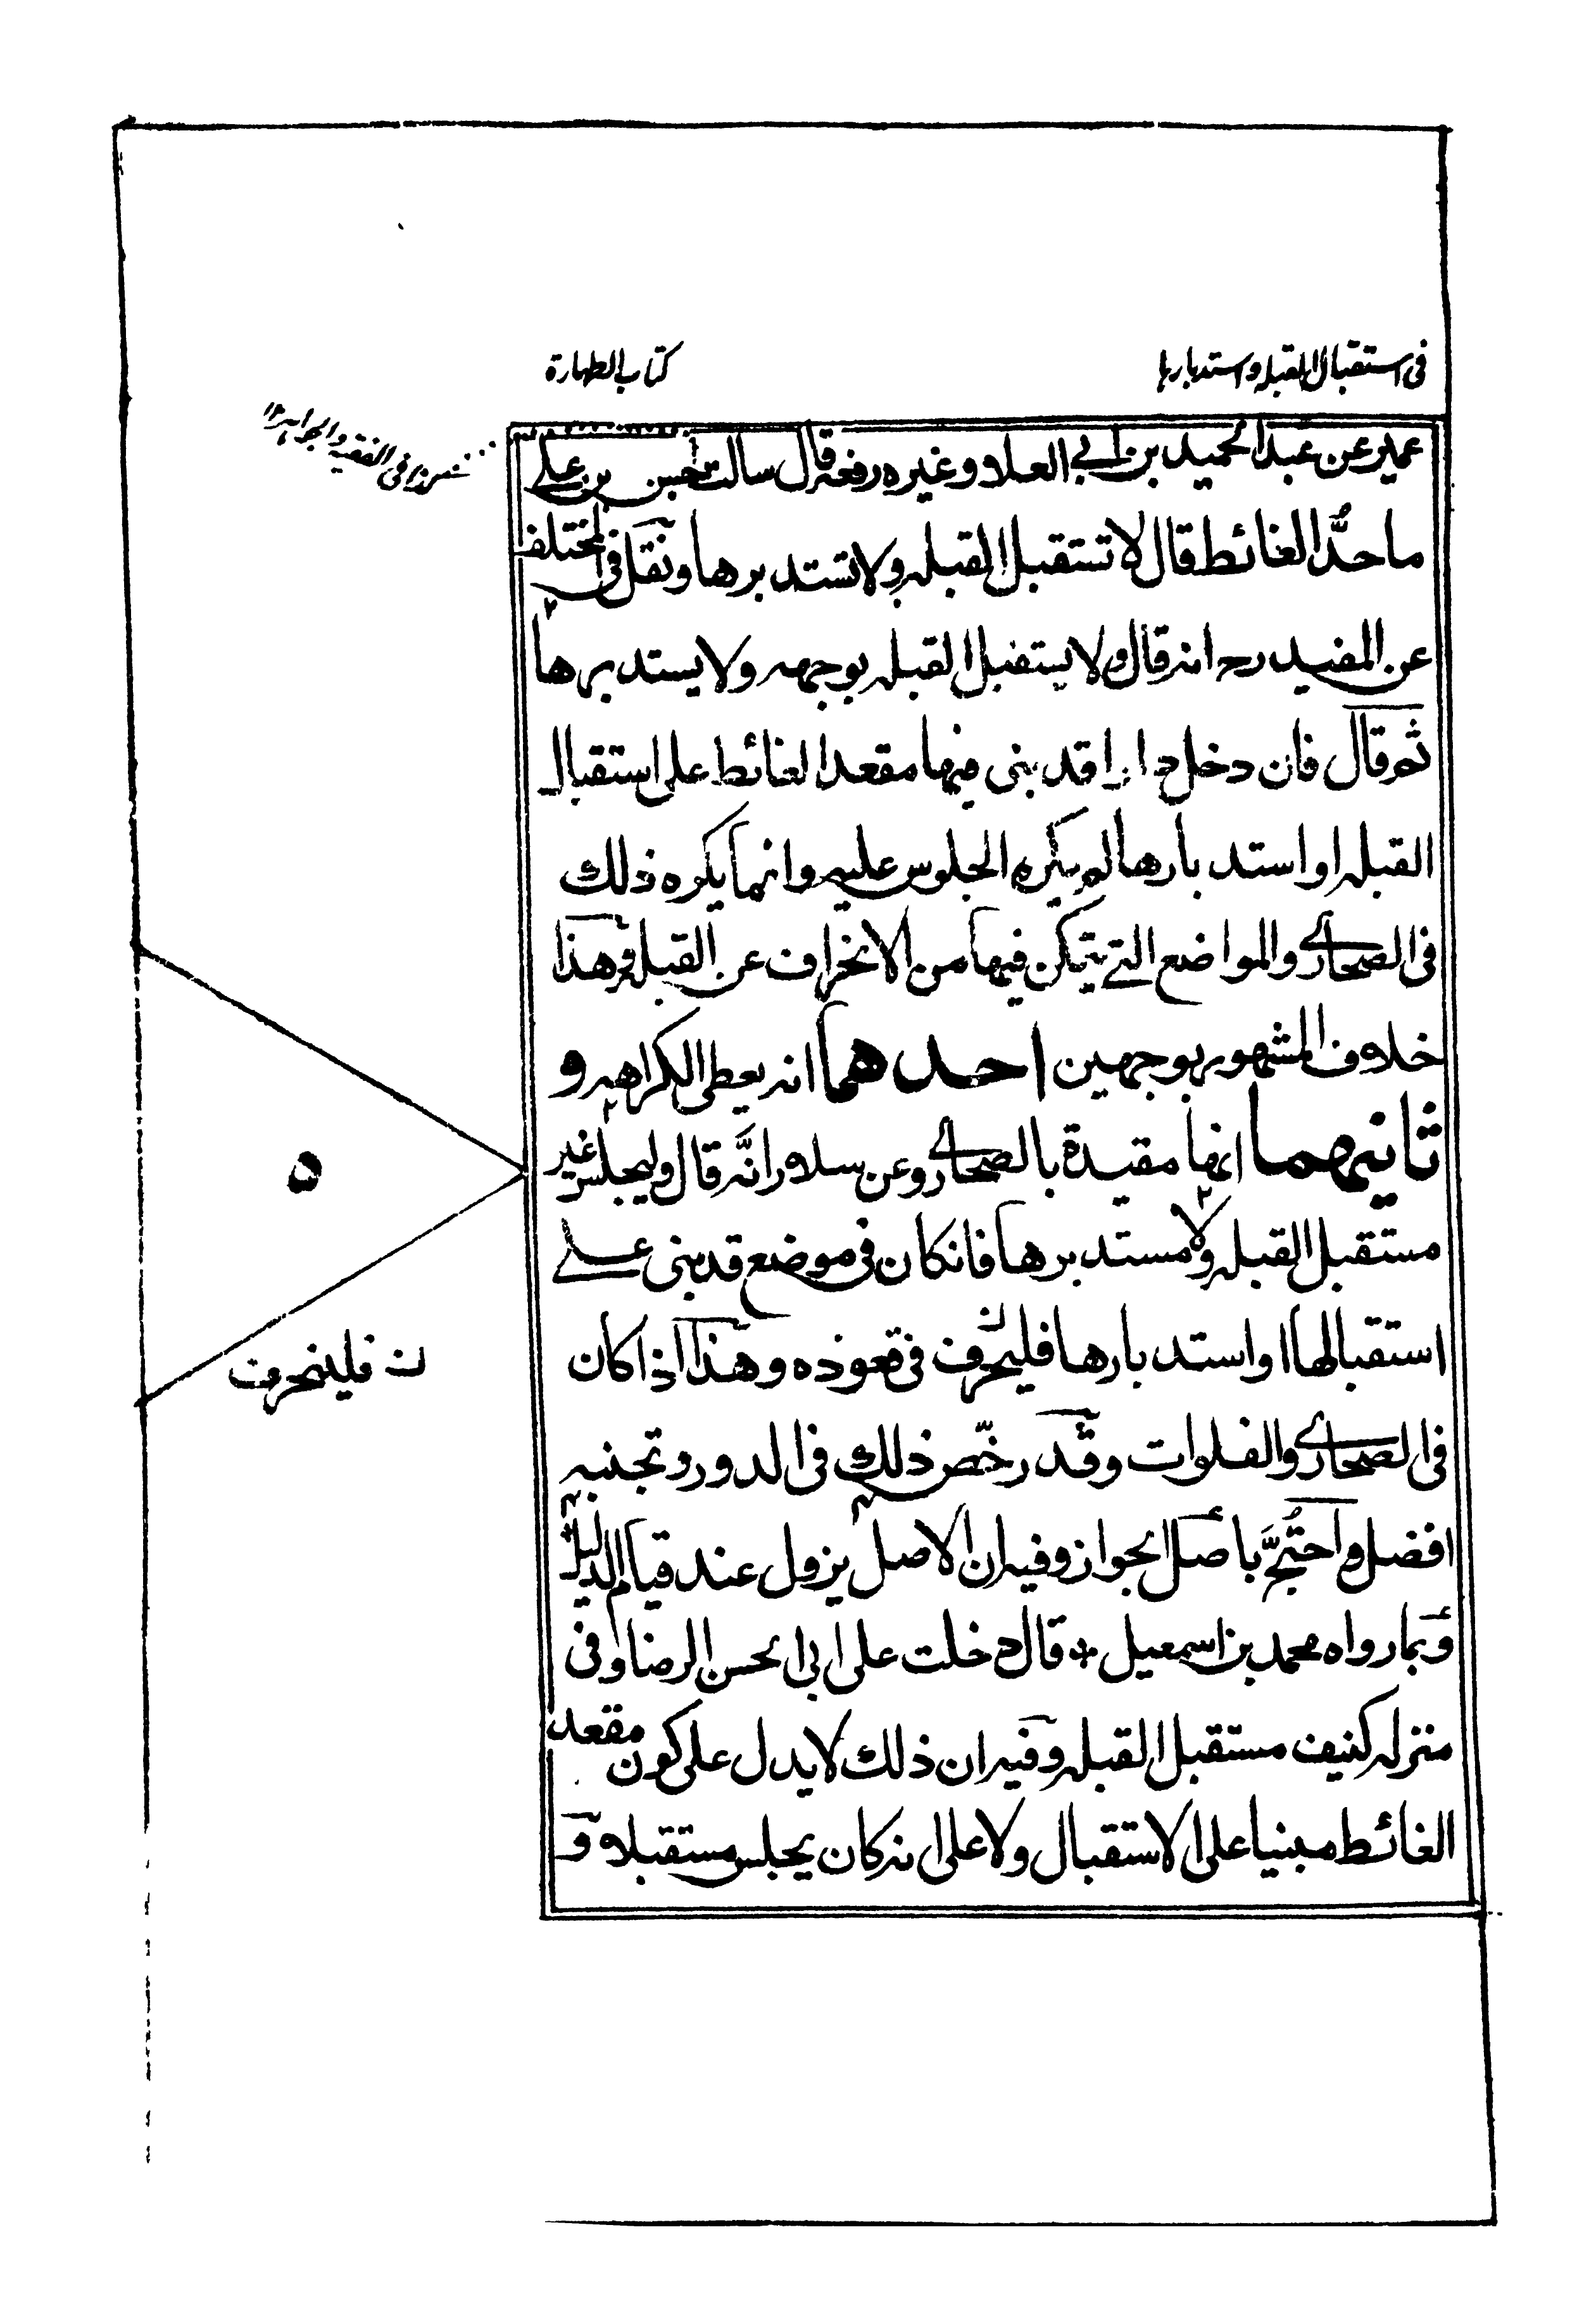 في استقبال القبله واستدبارها
كتاب الطهارة
عمير عن عبد الحميد بن ابي العلاء وغيره رفعه قال سالت حسن بن علي
ما حدُّ الغائط قال لا تستقبل القبله ولا تستدبرها ونقل في المختلف
عن المفيد ره انه قال ولا يستقبل القبله بوجهه ولا يستدبرها
ثم قال فان دخل دارا قد بنى فيها مقعد الغائط على استقبال
القبله او استدبارها لم يكره الجلوس عليه وانما يكره ذلك
في الصحارى والمواضع التي يتمكن فيها من الانحراف عن القبله وهذا
خلاف المشهور بوجهين احدهما انه يعطى الكراهيه و
ثانيهما انها مقيدة بالصحارى وعن سلار انَّه قال وليجلس غير
مستقبل القبله ولا مستدبرها فانكان في موضع قد بنى على
استقبالها او استدبارها فليحرف في قعوده وهذا اذا كان
في الصحارى والفلوات وقد رخّص ذلك في الدور وتجنبه
افضل واحتُجَّ باصل الجواز وفيه ان الاصل يزول عند قيام الدليل
وبما رواه محمد بن اسمعيل قال دخلت على ابى الحسن الرضا وفي
منزله كنيف مستقبل القبله وفيه ان ذلك لا يدل على كون مقعد
الغائط مبنيا على الاستقبال ولا على انه كان يجلس مستقبلا و
۵
ن فلينحرف